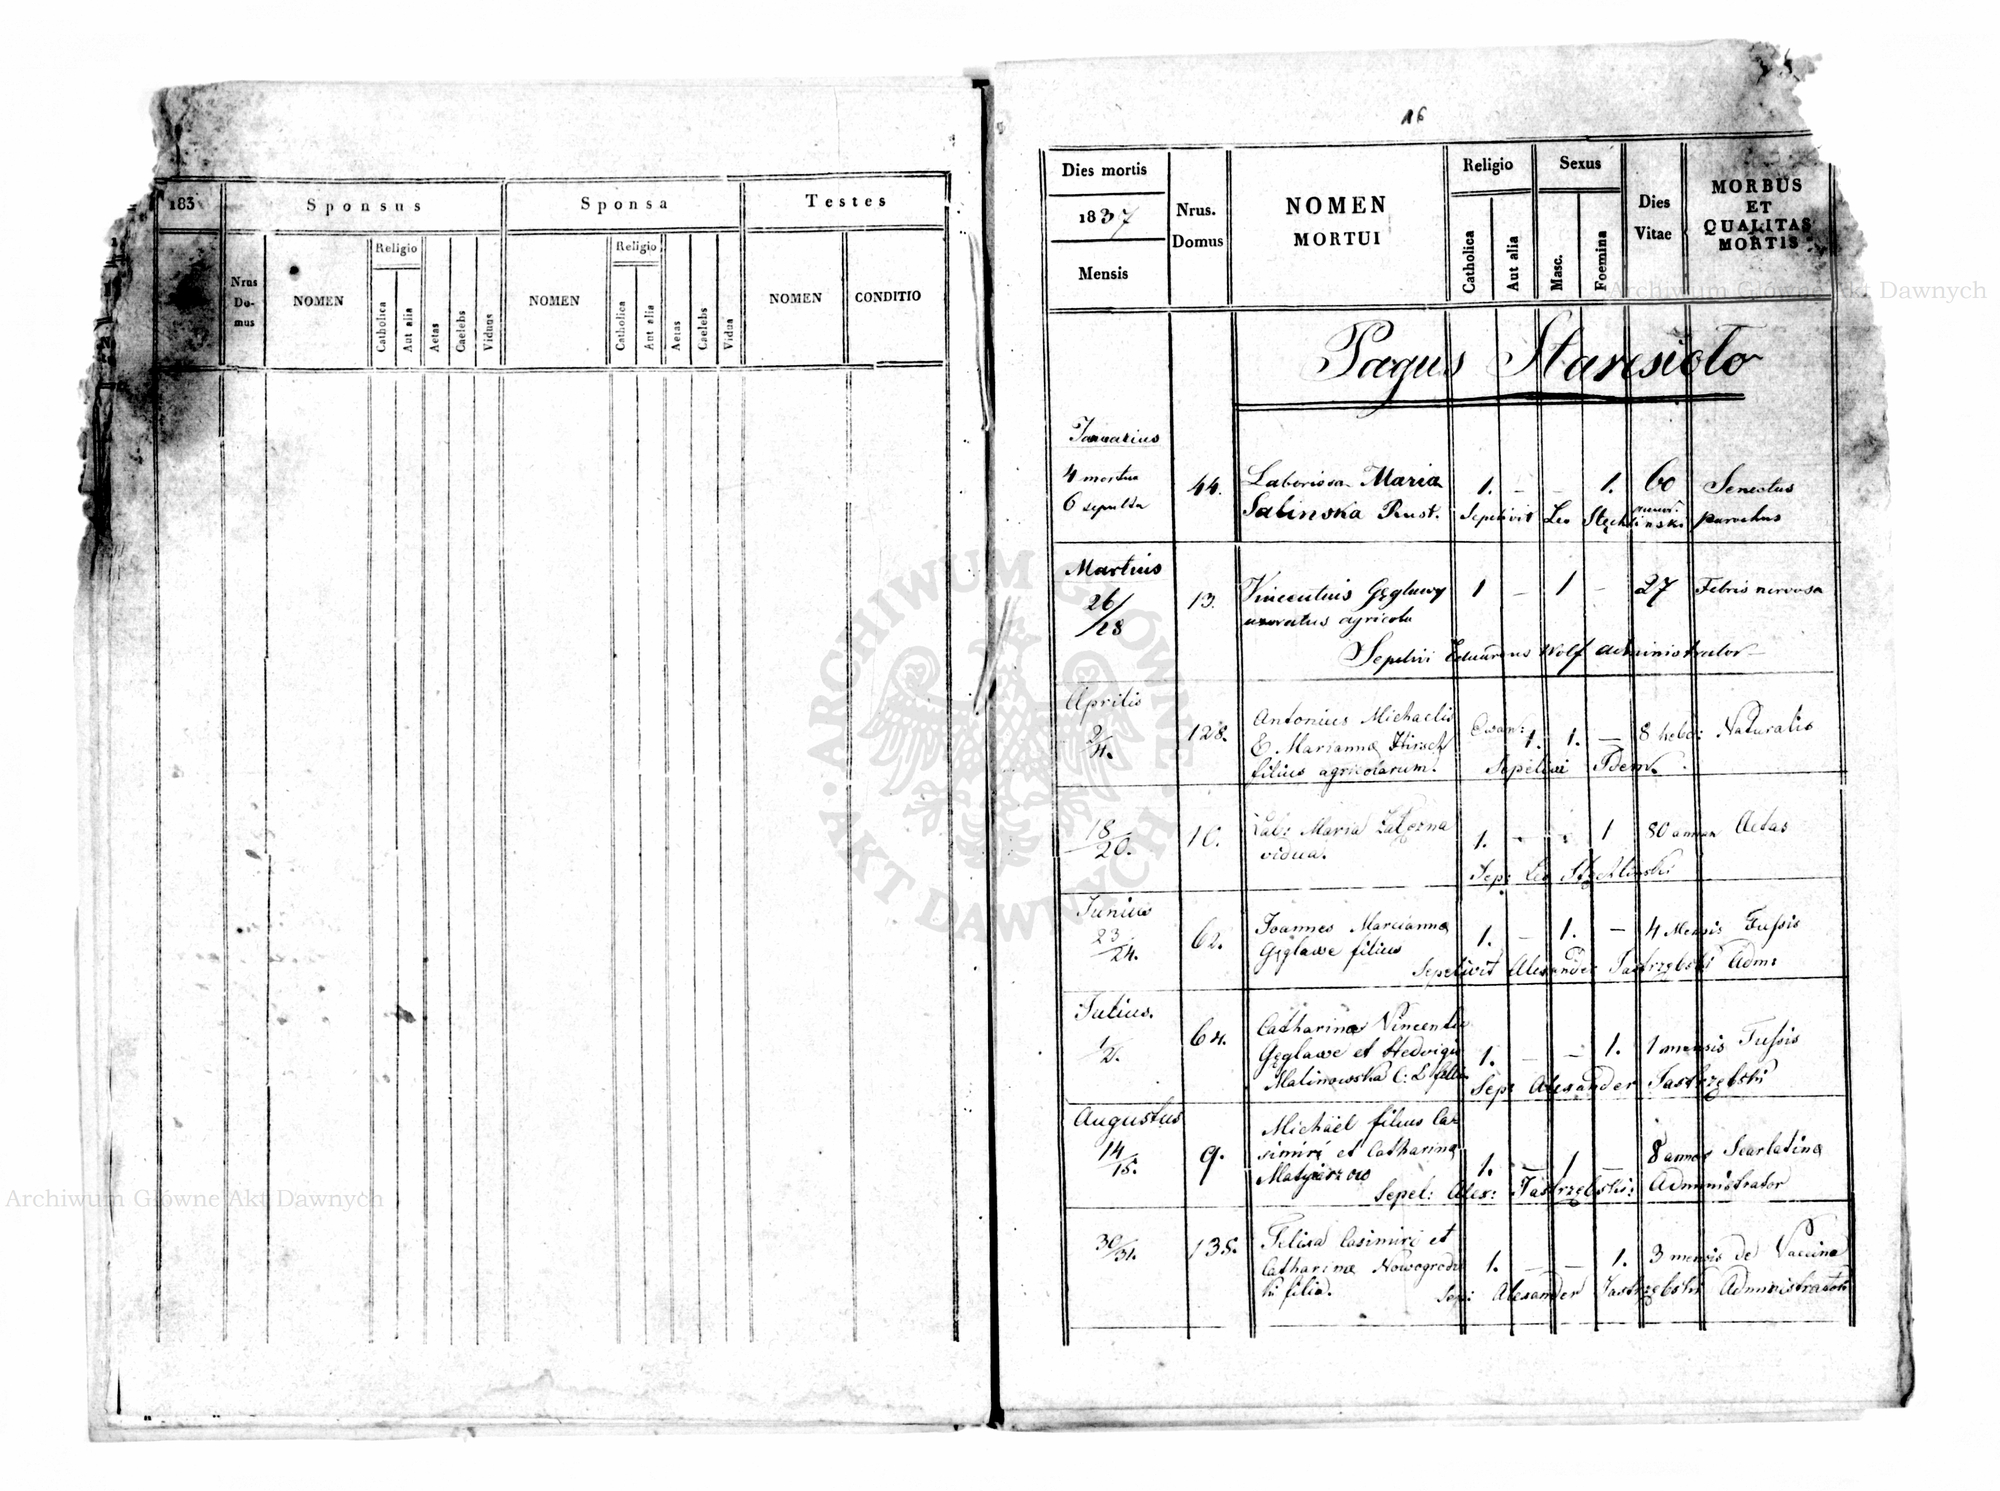 183
Sponsus
Sponsa
Testes
Nrus Do- mus
NOMEN
Religio
Catholica
Aut alia
Aetas
Caelebs
Viduus
NOMEN
Religio
Catholica
Aut alia
Aetas
Caelebs
Vidua
NOMEN
CONDITIO
16
Dies mortis
1837
Mensis
Nrus. Domus
NOMEN
MORTUI
Religio
Catholica
Aut alia
Sexus
Masc.
Foemina
Dies Vitae
MORBUS
ET
QUALITAS
MORTIS
Pagus Staresioło
Januarius
4 mortua 44. Laboriosa Maria 1. – – 1. 60 Senectus
6 sepulta Salinska Rust. Sepelivit Leo Stęchlinski parochus
Martius
26/28 13. Vincentius Gęglawy 1 – 1 – 27 Febris nervosa
uxoratus agricola
Sepelivi Eduardus Wolf administrator
Aprilis
2/4. 128. Antonius Michaelis 1. 1. – 8 hebd: Naturalis
E. Marianna Hirsch
filius agricolarum. Sepelivi Idem.
18/20. 10. Lab: Maria 1. – – 1 80 annor Aetas
vidua.
Sep: Leo Stęchlinski
Junius
23/24. 62. Joannes Marcianna 1. – 1. – 4 Mensis Tussis
Gęglawe filius
Sepelivit Alexander Jastrzębski Adm:
Julius.
1/2. 64. Catharina Vincentii
Gęglawe et Hedvigis 1. – – 1. 1 mensis Tussis
Malinowska C: L filia Sep: Alexander Jastrzębski
Augustus
14/15. 9. Michael filius Ca-
simiri et Catharina 1. – 1 – 8 annor Scarlatina
Sepel: Alex: Jastrzębski: Administrator
30/31. 135. Felixa Casimiri et
Catharina Nowogrodz 1. – – 1. 3 mensis de Vaccina
ki filia. Sep: Alexander Jastrzębski Administrator
ARCHIWUM GŁÓWNE AKT DAWNYCH
Archiwum Główne Akt Dawnych
Archiwum Główne Akt Dawnych